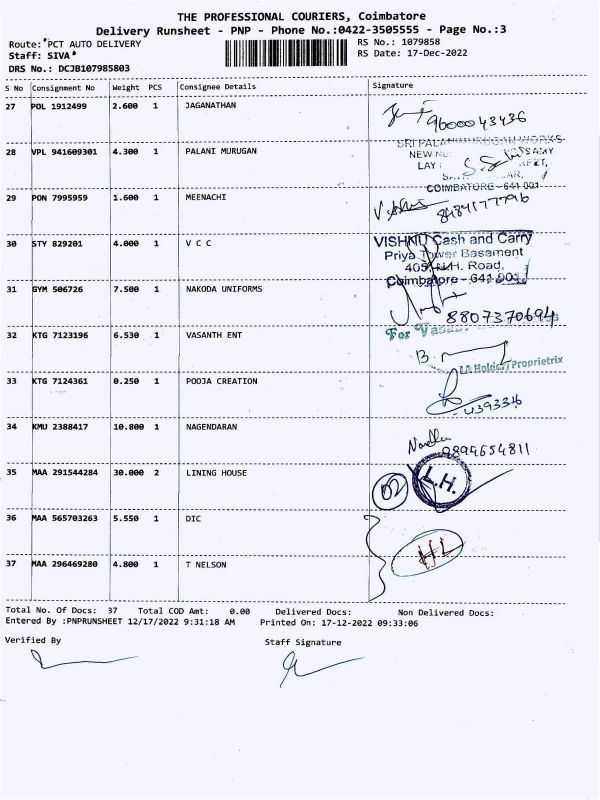 THE PROFESSIONAL COURIERS, Coimbatore
Delivery Runsheet - PNP - Phone No.:0422-3505555 - Page No.:3
Route: PCT AUTO DELIVERY
RS No.: 1079858
Staff: SIVA
RS Date: 17-Dec-2022
DRS No.: DCJB107985803
S No Consignment No Weight PCS Consignee Details Signature
27 POL 1912499 2.600 1 JAGANATHAN
9600043436
28 VPL 941609301 4.300 1 PALANI MURUGAN
SRI PALANIMURUGAN WORKS
NEW
LAY
COIMBATORE - 641 001
29 PON 7995959 1.600 1 MEENACHI
8484177796
30 STY 829201 4.000 1 V C C
VISHNU Cash and Carry
Priya Tower Basement
405, N.H. Road,
Coimbatore - 641 001
31 GYM 506726 7.500 1 NAKODA UNIFORMS
8807370694
32 KTG 7123196 6.530 1 VASANTH ENT
For
B.
Proprietrix
33 KTG 7124361 0.250 1 POOJA CREATION
34 KMU 2388417 10.800 1 NAGENDARAN
9894654811
35 MAA 291544284 30.000 2 LINING HOUSE
02 L.H.
36 MAA 565703263 5.550 1 DIC
HL
37 MAA 296469280 4.800 1 T NELSON
Total No. Of Docs: 37 Total COD Amt: 0.00 Delivered Docs: Non Delivered Docs:
Entered By :PNPRUNSHEET 12/17/2022 9:31:18 AM Printed On: 17-12-2022 09:33:06
Verified By Staff Signature